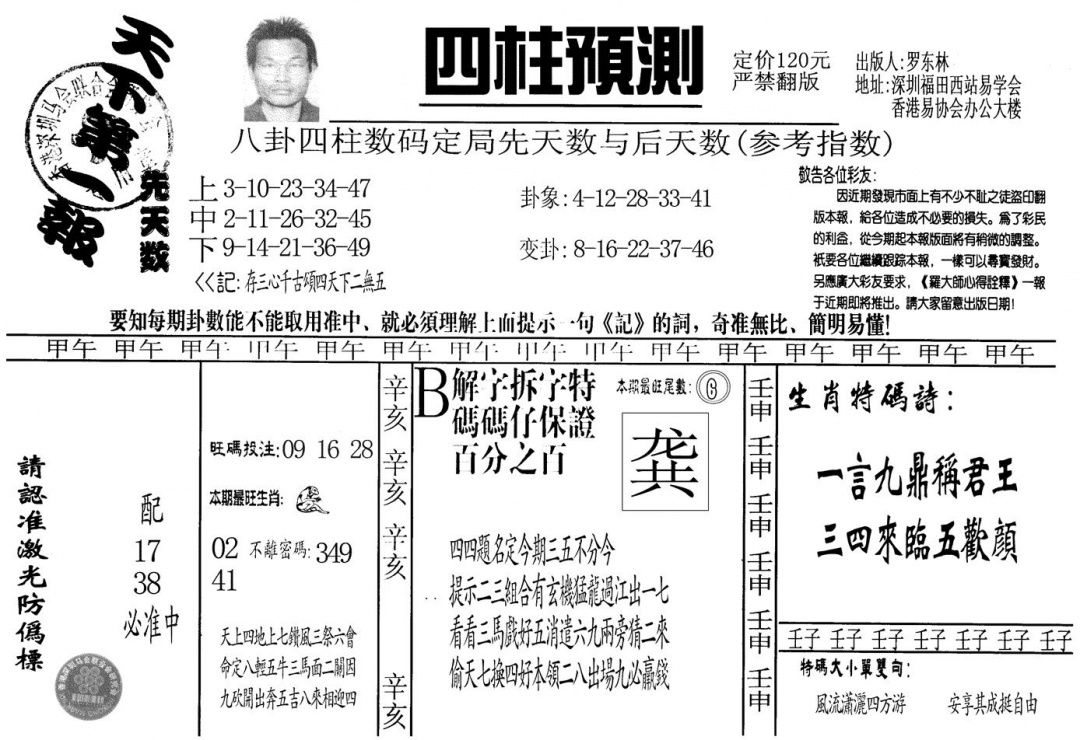 天下第一報
四柱預測
定价120元
严禁翻版
出版人:罗东林
地址:深圳福田西站易学会
香港易协会办公大楼
八卦四柱数码定局先天数与后天数(参考指数)
先天数
上3-10-23-34-47
中2-11-26-32-45
下9-14-21-36-49
<<記:存三心千古頌四天下二無五
卦象:4-12-28-33-41
变卦:8-16-22-37-46
敬告各位彩友:
因近期發現市面上有不少不耻之徒盜印翻
版本報，給各位造成不必要的損失。爲了彩民
的利益，從今期起本報版面將有稍微的調整。
祇要各位繼續跟踪本報，一樣可以尋寶發財。
另應廣大彩友要求，《羅大師心得詮釋》一報
于近期即將推出。請大家留意出版日期!
要知每期卦數能不能取用准中、就必須理解上面提示一句《記》的詞，奇准無比、簡明易懂!
甲午 甲午 甲午 甲午 甲午 甲午 甲午 甲午 甲午 甲午 甲午 甲午 甲午 甲午 甲午
請認准激光防僞標
配
17
38
必准中
旺碼投注:09 16 28
本期最旺生肖:
02 不離密碼:349
41
天上四地上七鑽風三祭六會
命定八輕五牛三馬面二關因
九砍開出奔五吉八來相迎四
辛亥
辛亥
辛亥
辛亥
B解字拆字特
碼碼仔保證
百分之百
本期最旺尾數:6
龚
四四題名定今期三五不分今
提示二三組合有玄機猛龍過江出一七
看看三馬戲好五消遣六九兩旁猜二來
偷天七換四好本領二八出場九必贏錢
壬申
壬申
壬申
壬申
壬申
壬申
生肖特碼詩:
一言九鼎稱君王
三四來臨五歡顔
壬子 壬子 壬子 壬子 壬子 壬子 壬子
特碼大小單雙句:
風流瀟灑四方游 安享其成挺自由